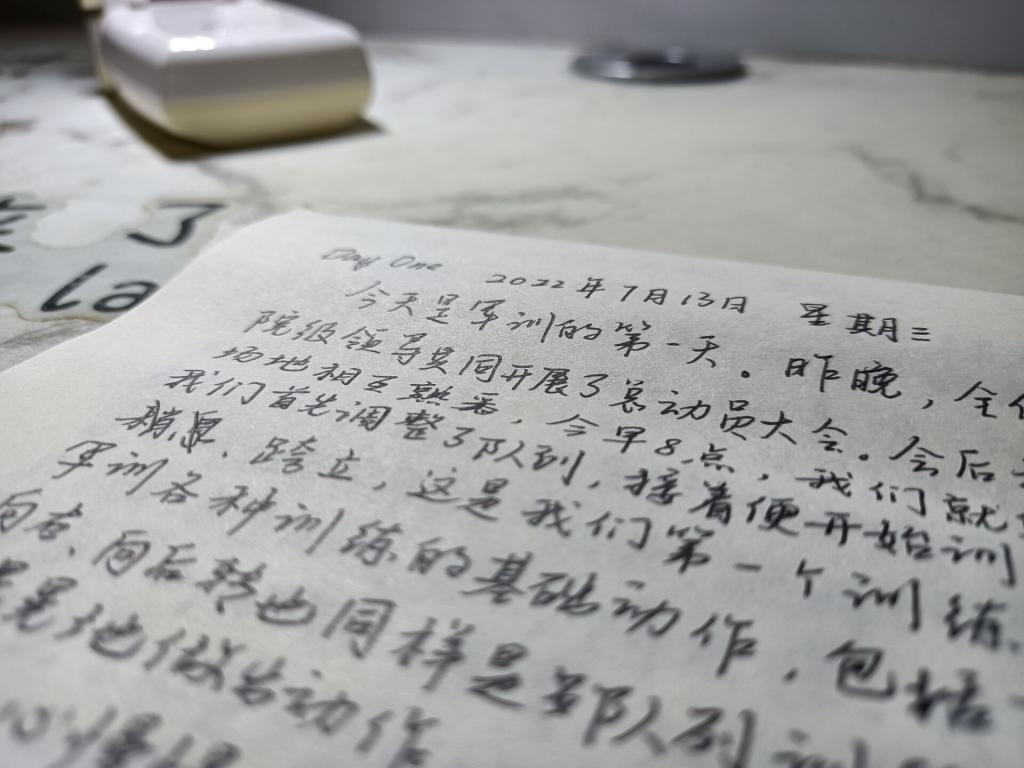 了
la
Day One 2022年7月13日 星期三
今天是军训的第一天。昨晚，全
院级领导共同开展了总动员大会。会后
场地相互熟悉，今早8点，我们就
我们首先调整了队列，接着便开始训
稍息、跨立，这是我们第一个训练
军训各种训练的基础动作，包括
向后转也同样是部队列训
地做出动作